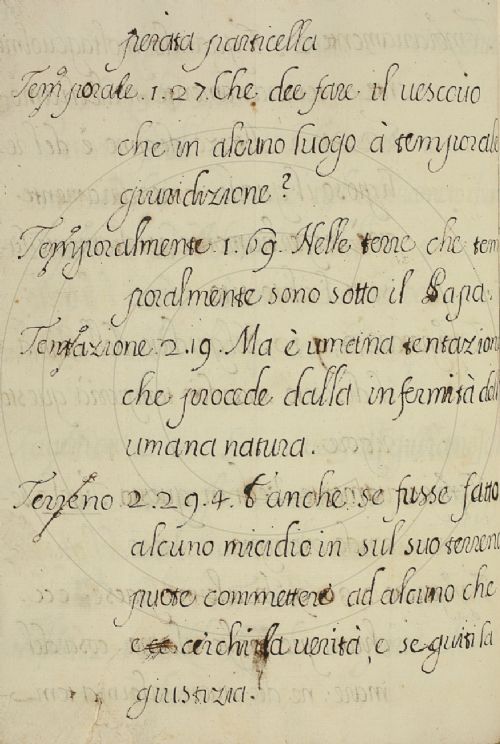 perata particella
Temporale. 1. 27. Che dee fare il vescovo
che in alcuno luogo à temporale
giuridizione?
Temporalmente. 1. 69. Nelle terre che tem
poralmente sono sotto il Papa.
Tentazione. 2. 19. Ma è umana tentazion
che procede dalla infermità dell
umana natura.
Terreno 2. 29. 4. E anche se fusse fatto
alcuno micidio in sul suo terreno
puote commettere ad alcuno che
cerchi la verità, e seguiti la
giustizia.